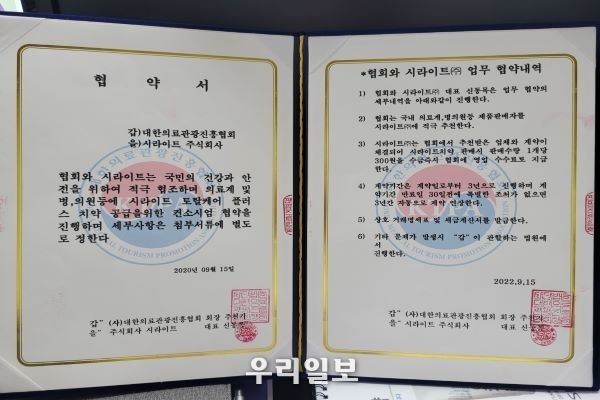 협 약 서
갑)대한의료관광진흥협회
을)시라이트 주식회사
협회와 시라이트는 국민의 건강과 안
전을 위하여 적극 협조하며 의료계 및
병,의원등에 시라이트 토탈케어 플러
스 치약 공급을위한 컨소시엄 협약을
진행하며 세부사항은 첨부서류에 별도
로 정한다.
2020년 09월 15일
갑" (사)대한의료관광진흥협회 회장
을" 주식회사 시라이트 대표 신동
*협회와 시라이트㈜ 업무 협약내역
1) 협회와 시라이트㈜ 대표 신동목은 업무 협약의
세부내역을 아래와같이 진행한다.
2) 협회는 국내 의료계,병의원등 제품판매자를
시라이트㈜에 적극 추천한다.
3) 시라이트㈜는 협회에서 추천받은 업체와 계약이
체결되어 시라이트치약 판매시 판매수량 1개당
300원을 수금즉시 협회에 영업 수수료로 지급
한다.
4) 계약기간은 계약일로부터 3년으로 진행하며 계
약기간 만료일 30일전에 특별한 조취가 없으면
3년간 자동으로 계약 연장한다.
5) 상호 거래명세표 및 세금계산서를 발급한다.
6) 기타 문제가 발생시 "갑"이 관할하는 법원에
서
진행한다.
2022.9.15
갑" (사)대한의료관광진흥협회 회장
을" 시라이트 주식회사 대표 신동
우리일보